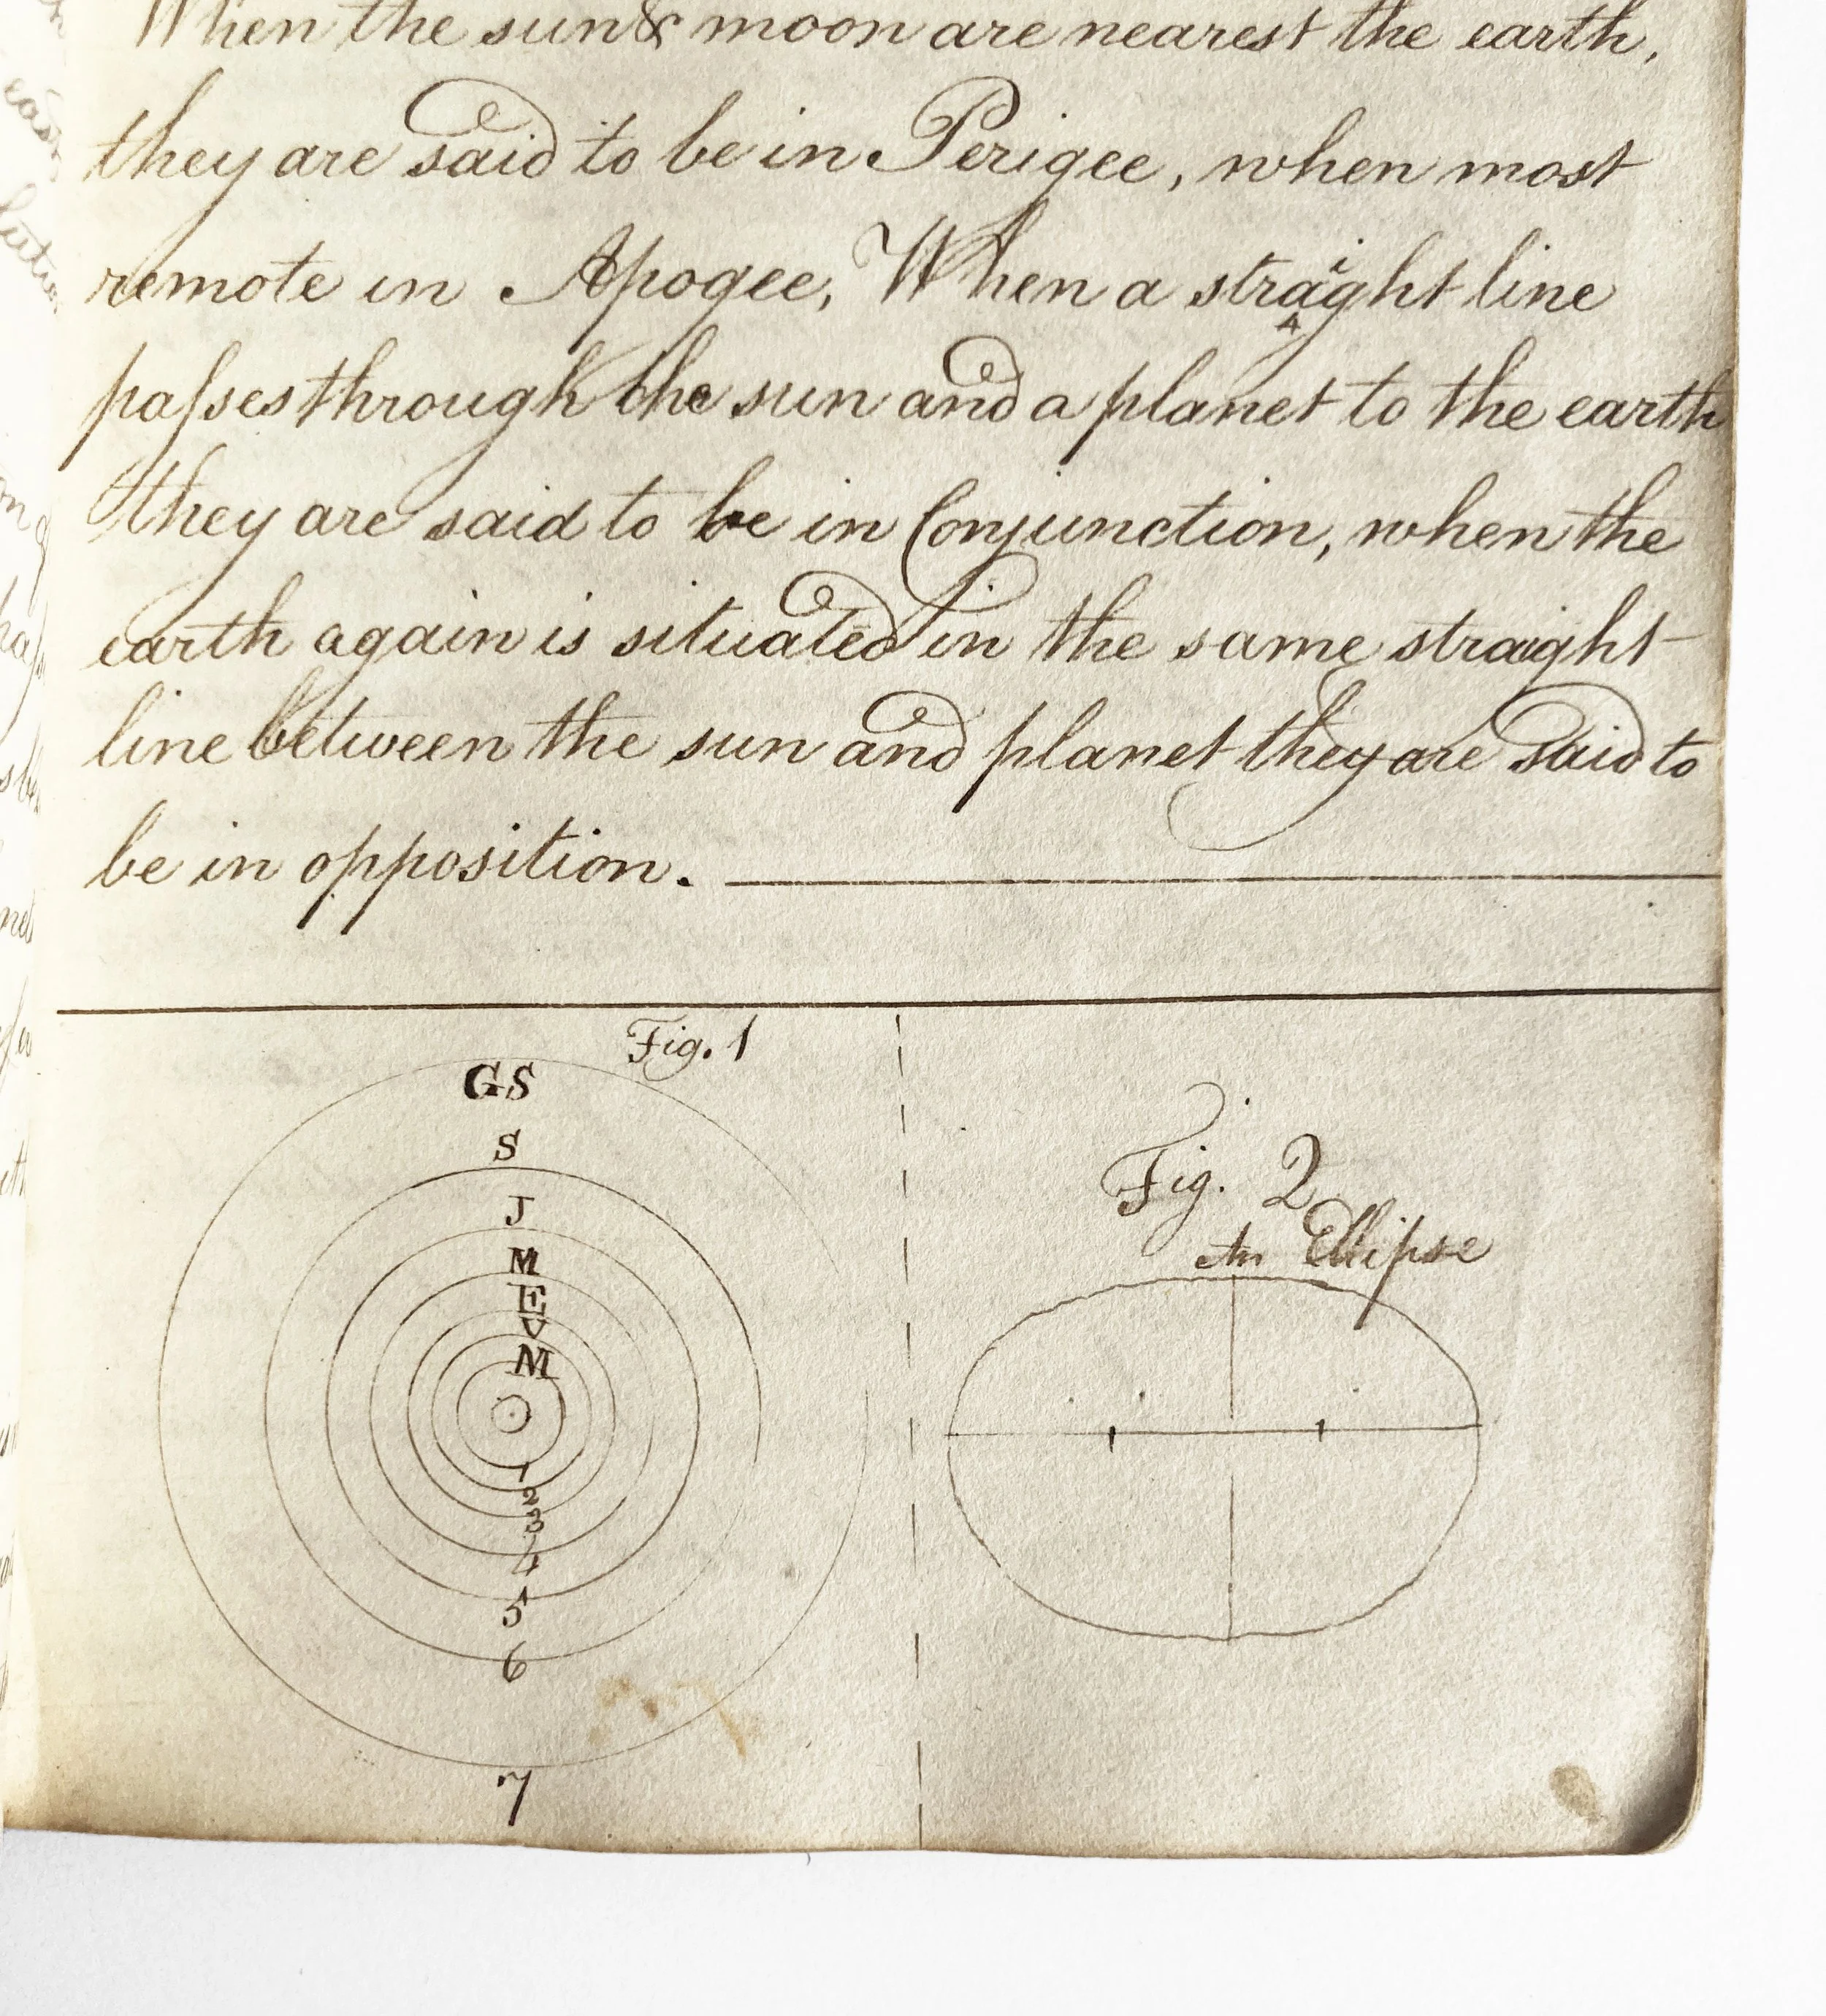 When the sun & moon are nearest the earth,
they are said to be in Perigee, when most
remote in Apogee, When a straight line
paſses through the sun and a planet to the earth
they are said to be in Conjunction, when the
earth again is situated in the same straight
line between the sun and planet they are said to
be in opposition.
Fig. 1
GS
S
J
M
E
V
M
1
2
3
4
5
6
7
Fig. 2
An Ellipse